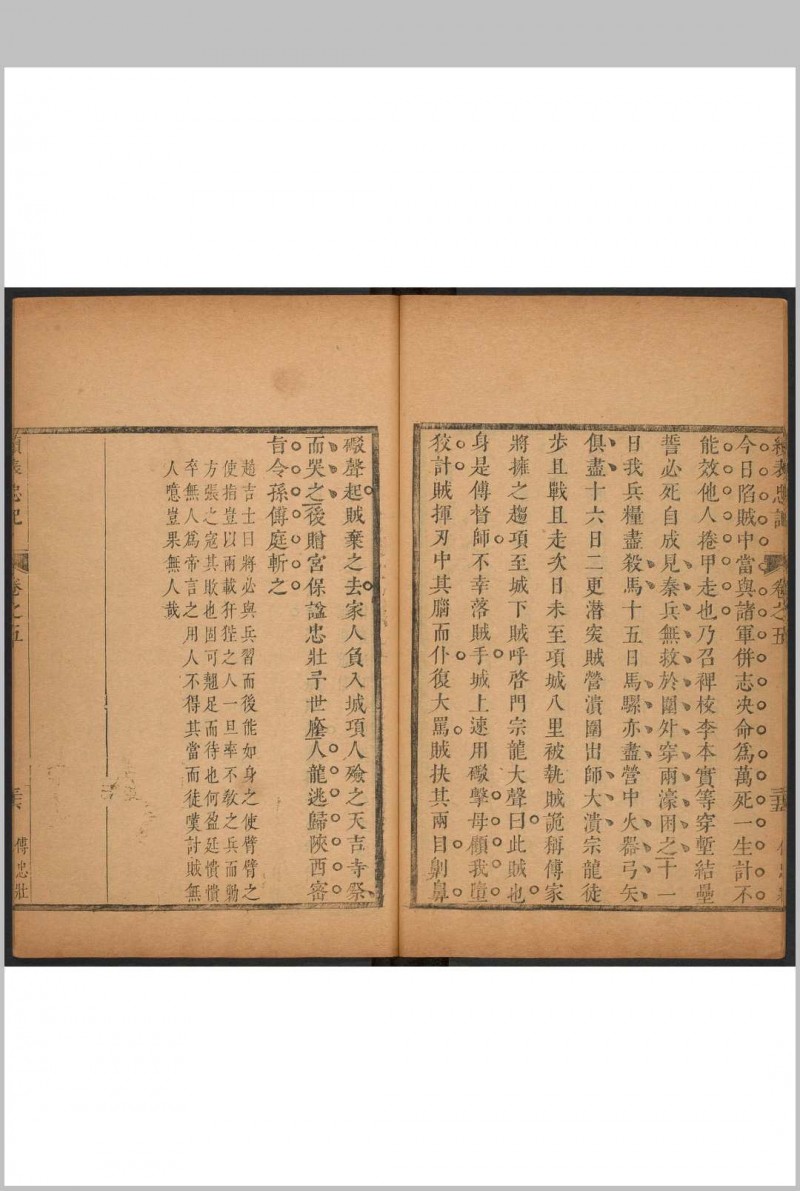 續表忠記
卷之五
三五
今日陷賊中當與諸軍併志决命爲萬死一生計不
能效他人捲甲走也乃召裨校李本實等穿塹結壘
誓必死自成見秦兵無救於圍外穿兩濠困之十一
日我兵糧盡殺馬十五日馬騾亦盡營中火器弓矢
俱盡十六日二更潛突賊營潰圍出師大潰宗龍徒
步且戰且走次日未至項城八里被執賊詭稱傅家
將擁之趨項至城下賊呼啓門宗龍大聲曰此賊也
身是傅督師不幸落賊手城上速用礮擊毋顧我墮
狡計賊揮刃中其腦而仆復大罵賊抉其兩目劓鼻
礮聲起賊棄之去家人負入城項人殮之天吉寺祭
而哭之後贈宮保諡忠壯予世廕人龍逃歸陝西密
旨令孫傅庭斬之
趙吉士曰將必與兵習而後能如身之使臂臂之
使指豈以兩載犴狴之人一旦率不敎之兵而勦
方張之寇其敗也固可翹足而待也何盈廷憒憒
卒無人爲帝言之用人不得其當而徒嘆討賊無
人噫豈果無人哉
續表忠記
卷之五
三六
傅忠壯